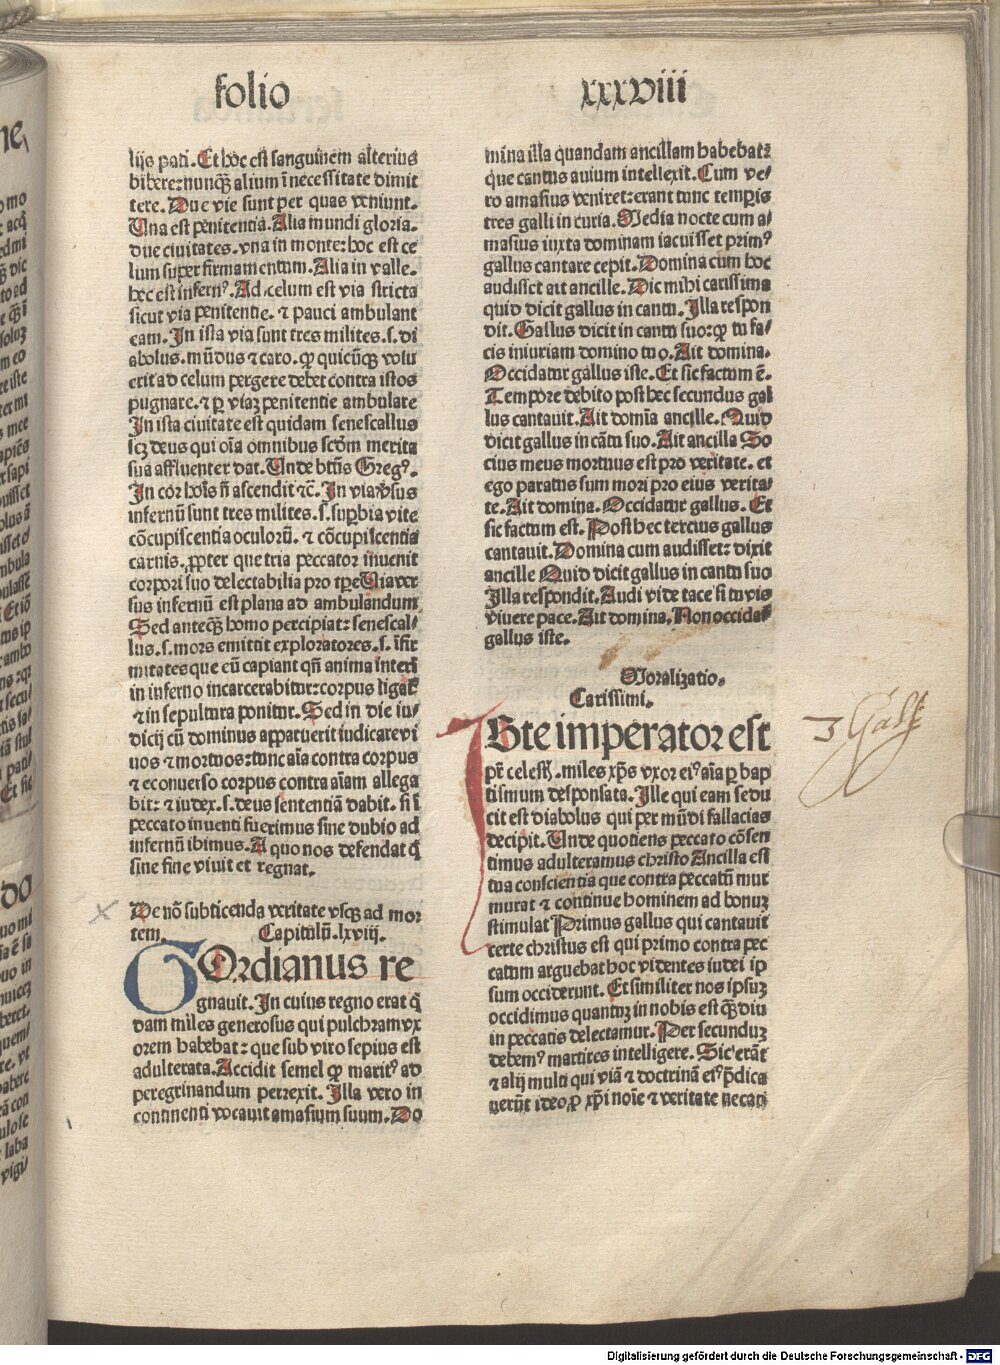 folio xxxviii
lijs pati. Et hoc est sanguinem alterius
bibere: nunqꝫ alium ī necessitate dimit
tere. Due vie sunt per quas veniunt.
Una est penitentia. Alia mundi gloria.
due ciuitates. vna in monte: hoc est ce
lum super firmamentum. Alia in valle.
hec est infernꝰ. Ad celum est via stricta
sicut via penitentie. ⁊ pauci ambulant
eam. In ista via sunt tres milites. s. di
abolus. mūdus ⁊ caro. ꝙ quicūqꝫ volu
erit ad celum pergere debet contra istos
pugnare. ⁊ ꝑ viaꝫ penitentie ambulare
In ista ciuitate est quidam senescallus
scꝫ deus qui oīa omnibus scdm merita
sua affluenter dat. Unde btūs Gregꝰ.
In cor hoīs nō ascendit ⁊c̄. In via ꝟsus
infernū sunt tres milites. s. suꝑbia vite
cōcupiscentia oculorū. ⁊ cōcupiscentia
carnis. ꝓpter que tria peccator inuenit
corpori suo delectabilia pro tꝑe Uia ver
sus infernū est plana ad ambulandum
Sed anteqꝫ homo percipiat: senescal⸗
lus. s. mors emittit exploratores. s. īfir
mitates que eū capiant qn̄ anima interī
in inferno incarcerabitur: corpus ligat᷑
⁊ in sepultura ponitur. Sed in die iu⸗
dicij cū dominus apparuerit iudicare vi
uos ⁊ mortuos: tunc aīa contra corpus
⁊ econuerso corpus contra aīam allega
bit: ⁊ iudex. s. deus sententiā dabit. si ī
peccato inuenti fuerimus sine dubio ad
infernū ibimus. A quo nos defendat q̄
sine fine viuit et regnat.
De nō subticenda veritate vsqꝫ ad mor
tem. Capitulū. lxviij.
GOrdianus re
gnauit. In cuius regno erat q̄
dam miles generosus qui pulchram vx
orem habebat: que sub viro sepius est
adulterata. Accidit semel ꝙ maritꝰ ad
peregrinandum perrexit. Illa vero in
continenti vocauit amasium suum. Do
mina illa quandam ancillam habebat:
que cantus auium intellexit. Cum ve⸗
ro amasius veniret: erant tunc temꝑis
tres galli in curia. Media nocte cum a⸗
masius iuxta dominam iacuisset primꝰ
gallus cantare cepit. Domina cum hoc
audisset ait ancille. Dic mihi carissima
quid dicit gallus in cantu. Illa respon
dit. Gallus dicit in cantu suo: ꝙ tu fa⸗
cis iniuriam domino tuo. Ait domina.
Occidatur gallus iste. Et sic factum ē.
Tempore debito post hec secundus gal
lus cantauit. Ait domīa ancille. Quid
dicit gallus in cātu suo. Ait ancilla So
cius meus mortuus est pro veritate. et
ego paratus sum mori pro eius verita⸗
te. Ait domina. Occidatur gallus. Et
sic factum est. Post hec tercius gallus
cantauit. Domina cum audisset: dixit
ancille Quid dicit gallus in cantu suo
Illa respondit. Audi vide tace si tu vis
viuere pace. Ait domina. Non occidat᷑
gallus iste.
Moralizatio.
Carissimi.
Iste imperator est
pr̄ celestꝭ. miles xp̄s vxor eiꝰ aīa ꝑ bap
tismum desponsata. Ille qui eam sedu
cit est diabolus qui per mūdi fallacias
decipit. Unde quotiens peccato cōsen
timus adulteramus christo Ancilla est
tua conscientia que contra peccatū mur
murat ⁊ continue hominem ad bonuꝫ
stimulat Primus gallus qui cantauit
certe christus est qui primo contra pec
catum arguebat hoc videntes iudei ip
sum occiderunt. Et similiter nos ipsuꝫ
occidimus quantuꝫ in nobis est qꝫdiu
in peccatis delectamur. Per secunduꝫ
debemꝰ martires intelligere. Sic erāt
⁊ alij multi qui viā ⁊ doctrinā eiꝰ p̄dica
uerūt ideo ꝓ xp̄i noīe ⁊ veritate necati
3 Gall
Digitalisierung gefördert durch die Deutsche Forschungsgemeinschaft - DFG